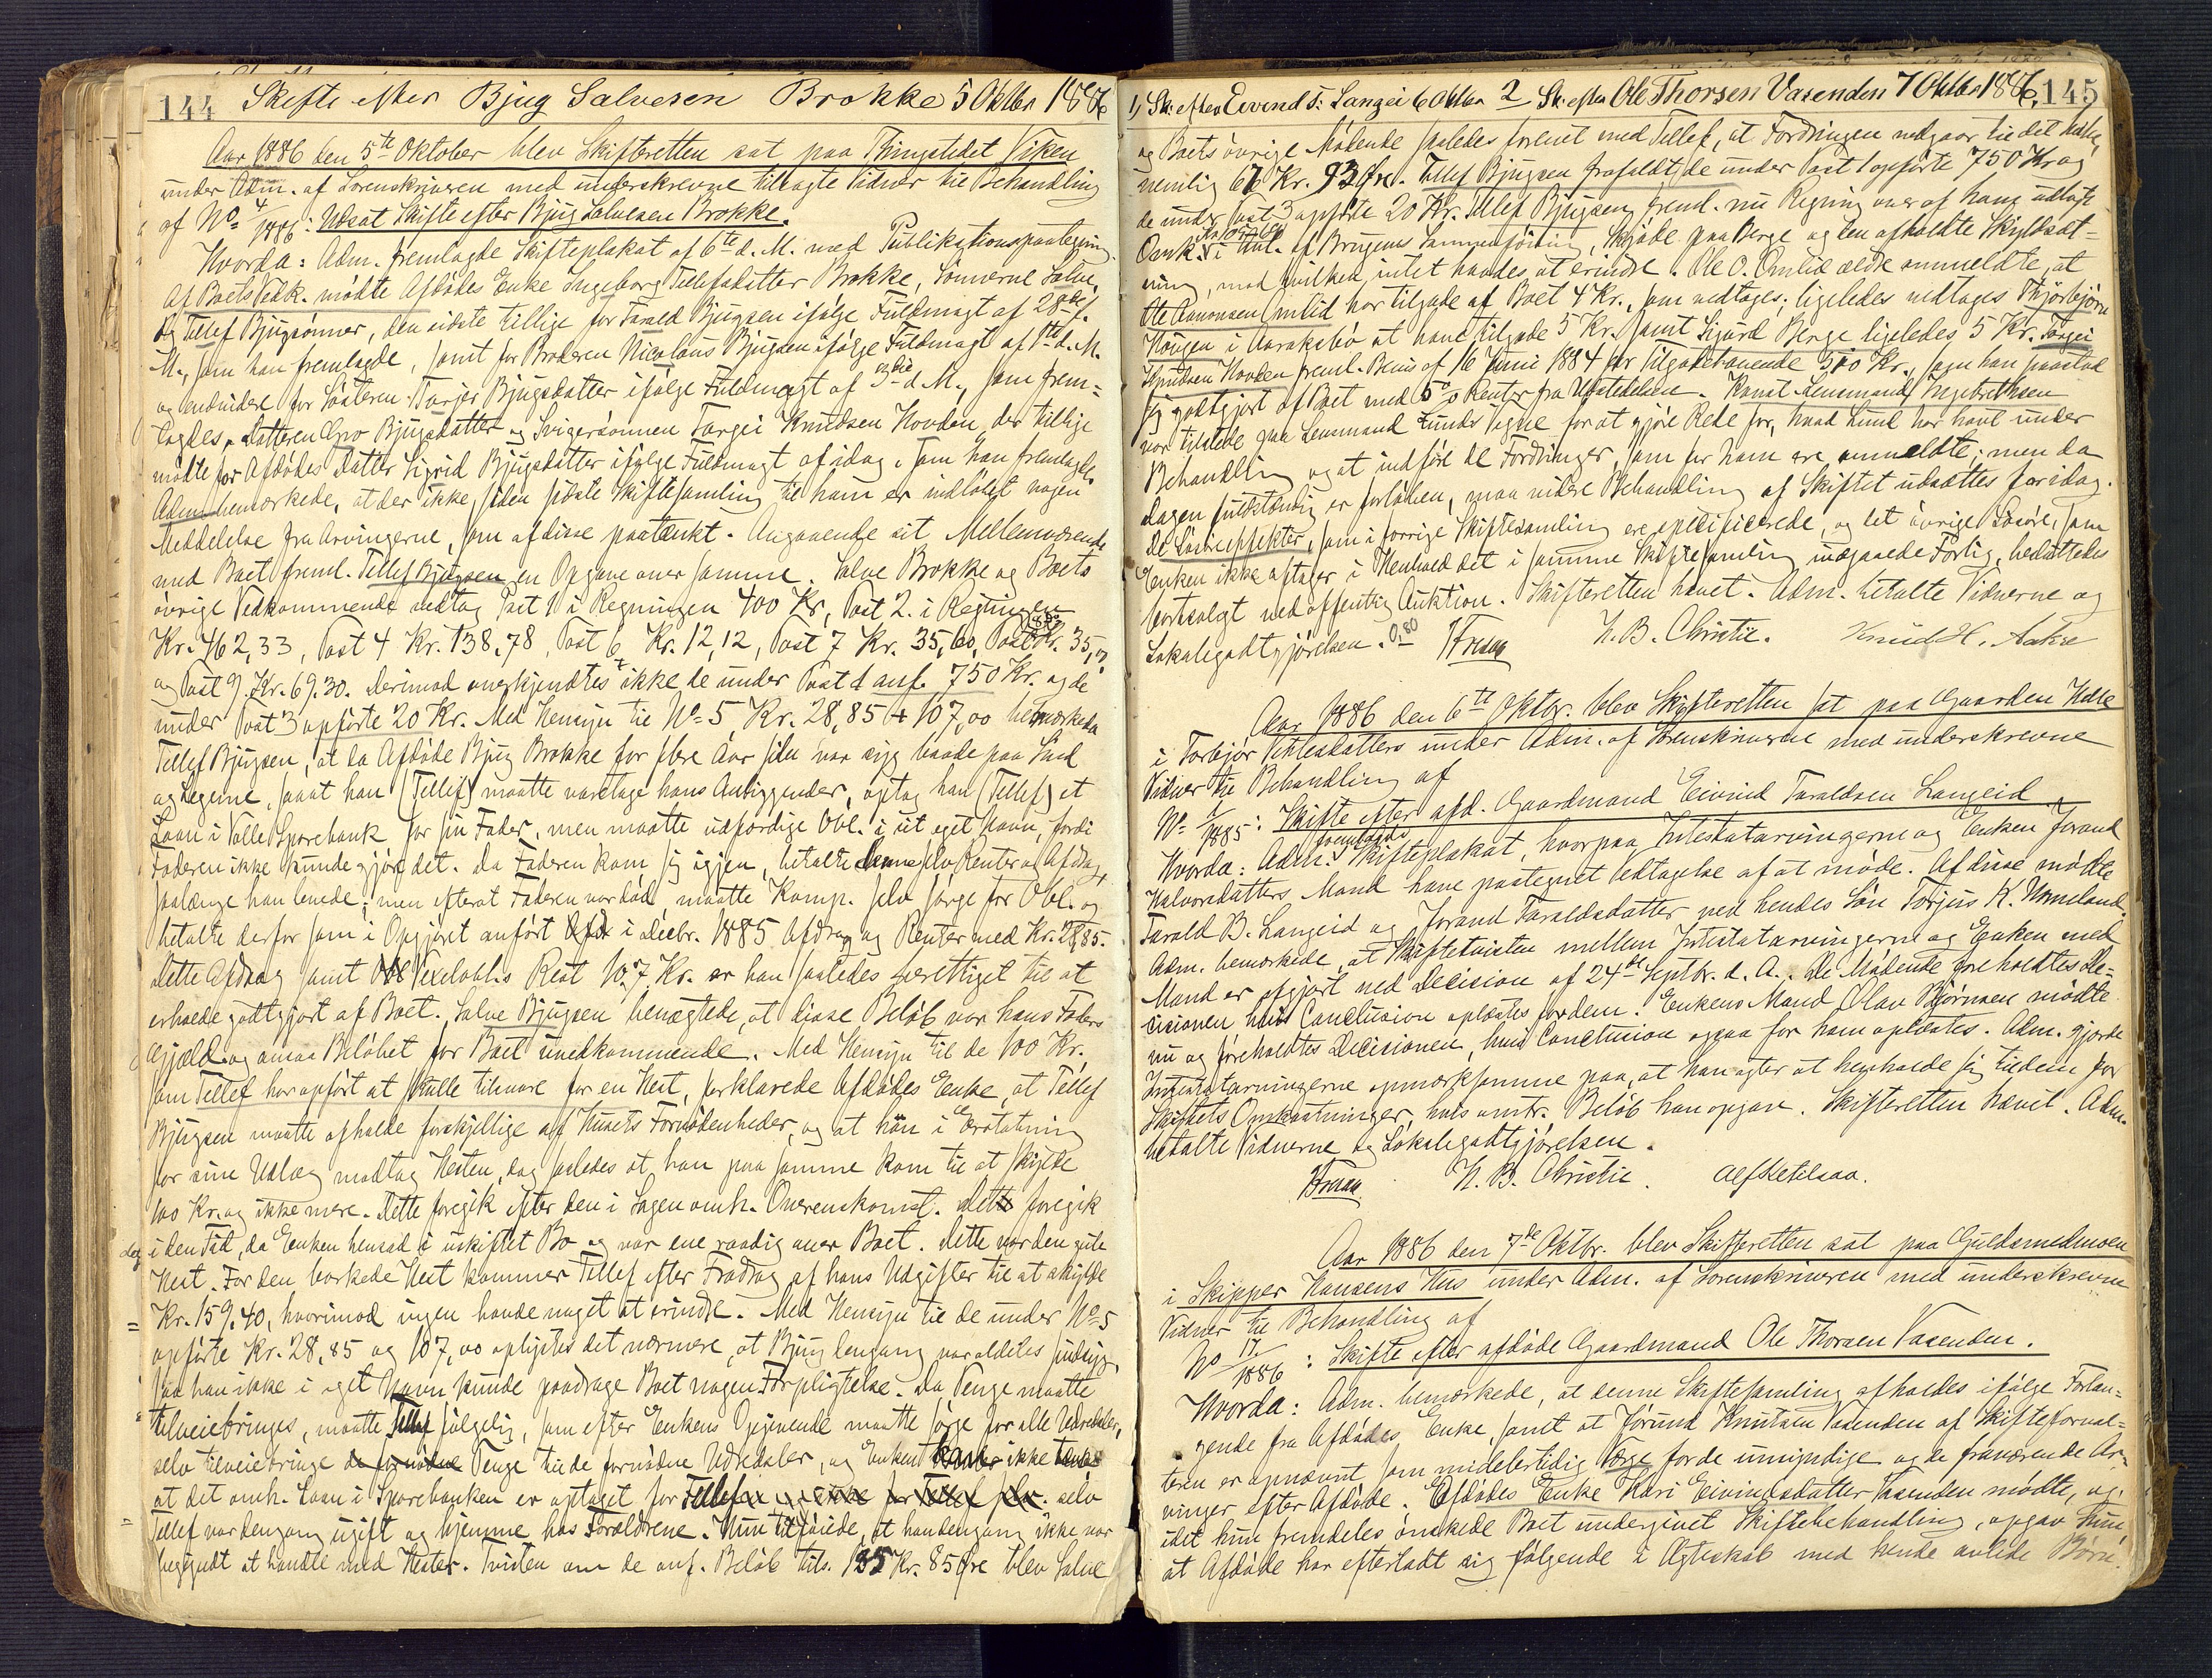 144 Skifte efter Bjug Salvesen Brokke 5 Oktbr 1886
Aar 1886 den 5te Oktober blev Skifteretten sat paa Thingstedet Viken
under Adm. af Sorenskriveren med underskrevne tiltagte Vidner til Behandling
af No 4/1886: Udsat Skifte efter Bjug Salvesen Brokke.
Hvorda: Adm. fremlagde Skifteplakat af 6te d. M. med Publikationspaategning.
Af Boets Vedk. mødte Afdødes Enke Ingeborg Tellefsdatter Brokke, Sønnerne Salve
og Tellef Bjugsønner, den sidste tillige for Tarald Bjugsen ifølge Fuldmagt af 28de f.
M., som han fremlagde, samt for Broderen Nicolaus Bjugsen ifølge Fuldmagt af 1ste d. M.
og endvidere for Søsteren Torjer Bjugsdatter ifølge Fuldmagt af 3die d. M., som frem=
lagdes, Datteren Gro Bjugsdatter og Svigersønnen Targei Knudsen Hovden, der tillige
mødte for Afdødes Datter Sigrid Bjugsdatter ifølge Fuldmagt af idag, som han fremlagde.
Adm. bemærkede, at der ikke siden sidste Skiftesamling til ham er indløbet nogen
Meddelelse fra Arvingerne, som af disse paatænkt. Angaaende sit Mellemværende
med Boet freml. Tellef Bjugsen en Opgave over samme. Salve Brokke og Boets
øvrige Vedkommende vedtog Post 1 i Regningen 400 Kr, Post 2 i Regningen
Kr. 462,33, Post 4 Kr. 138,78, Post 6 Kr. 12,12, Post 7 Kr. 35,60, Post 8 Kr. 35,
og Post 9 Kr. 69.30. Derimod anerkjendtes ikke de under Post 1 anf. 750 Kr. og de
under Post 3 opførte 20 Kr. Med Hensyn til No 5 Kr. 28,85 + 107,00 bemærkede
Tellef Bjugsen, at da Afdøde Bjug Brokke for flere Aar siden var syg baade paa Sind
og Legeme, saaat han (Tellef) maatte varetage hans Anliggender, optog han (Tellef) et
Laan i Valle Sparebank for sin Fader, men maatte udfærdige Obl. i sit eget Navn, fordi
Faderen ikke kunde gjøre det. Da Faderen kom sig igjen, betalte denne selv Renter og Afdrag,
saalænge han levede; men efterat Faderen var død maatte Komp. selv sørge for Obl. og
betalte derfor som i Opgjøret anført i Decbr. 1885 Afdrag og Renter med Kr. 28,85.
Dette Afdrag samt Vexelobl.s Rest 107 Kr. er han saaledes berettiget til at
erholde godtgjort af Boet. Salve Bjugsen benægtede, at disse Beløb var hans Faders
Gjæld og ansaa Beløbet for Boet uvedkommende. Med Hensyn til de 100 Kr.
som Tellef har opført at skulle tilsvare for en Hest, forklarede Afdødes Enke, at Tellef
Bjugsen maatte afholde forskjellige af Husets Fornødenheder, og at han i Erstatning
for sine Udlæg modtog Hesten, dog saaledes at han paa samme kom til at skylde
100 Kr. og ikke mere. Dette foregik efter den i Sagen omh. Overenskomst. Dette foregik
dog i den Tid, da Enken hensad i uskiftet Bo og var ene raadig over Boet. Dette var den gule
Hest. For den borkede Hest kommer Tellef efter Fradrag af hans Udgifter til at skylde
Kr. 159.40, hvorimod ingen havde noget at erindre. Med Hensyn til de under No 5
opførte Kr. 28,85 og 107,00 oplystes det nærmere, at Bjug dengang var aldeles sindsyg,
saa han ikke i eget Navn kunde paadrage Boet nogen Forpligtelse. Da Penge maatte
tilveiebringes, maatte Tellef følgelig, som efter Enkens Opgivende maatte sørge for alle Udredsler,
selv tilveiebringe de fornødne Penge til de fornødne Udredsler, og Enken ikke
at det omh. Laan i Sparebanken er optaget for Tellef selv
Tellef var dengang ugift og hjemme hos Forældrene. Hun tilføiede, at han dengang ikke var
begyndt at handle med Heste. Tvisten om de anf. Beløb tils. 135 Kr. 85 Øre blev Salve
1, Sk. efter Eivind T. Langei 6 Oktbr 2 Sk. efter Ole Thorsen Vasenden 7 Oktbr 1886, 145
og Boets øvrige Mødende saaledes forenet med Tellef, at Fordringen nedgaar til det halve,
nemlig 67 Kr. 93 Øre. Tellef Bjugsen frafaldt de under Post 1 opførte 750 Kr og
de under Post 3 opførte 20 Kr. Tellef Bjugsen freml. nu Regning over af ham udlagte
Omk. i Anl. af Brugenes Sammenføining, Skjøde paa Berge og den afholdte Skyldsæt=
ning, mod hvilken intet havdes at erindre. Ole O. Omlid ældre anmeldte, at
Ole Aanonsen Omlid har tilgode af Boet 4 Kr., som vedtages; ligeledes vedtages Thjøstbjørn
Haugen i Aaraksbø at have tilgode 5 Kr. samt Sigurd Berge ligeledes 5 Kr. Targei
Knudsen Hovden freml. Bevis af 16 Juni 1884 for Tilgodehavende 500 Kr., som han paastod
sig godtgjort af Boet med 5% Renter fra Udstedelsen. Konst. Lensmand Ingebrethsen
var tilstede paa Lensmand Lunds Vegne for at gjøre Rede for, hvad Lund har havt under
Behandling og at indføre de Fordringer, som for ham ere anmeldte; men da
Dagen fuldstændig er forløben, maa videre Behandling af Skiftet udsættes for idag.
De Løsøreeffekter, som i forrige Skiftesamling ere specificerede, og det øvrige Løsøre, som
Enken ikke aftager i Henhold det i samme Skiftesamling indgaaede Forlig, besluttedes
bortsolgt ved offentlig Auktion. Skifteretten hævet. Adm. betalte Vidnerne og
Lokalegodtgjørelsen. 0,80 N. B. Christie. Knud H. Aakre
Aar 1886 den 6te Oktbr. blev Skifteretten sat paa Gaarden
i Torbjør under Adm. af Sorenskriveren med underskrevne
Vidner til Behandling af
No 1/1885: Skifte efter afd. Gaardmand Eivind Taraldsen Langeid
Hvorda: Adm. fremlagde Skifteplakat, hvorpaa Intestatarvingerne og Enken Jorand
Halvorsdatters Mand have paategnet Vedtagelse af at møde. Af disse mødte
Tarald B. Langeid og Jorand Taraldsdatter ved hendes Søn Torjus K. Uppeland.
Adm. bemærkede, at Skiftetvisten mellem Intestatarvingerne og Enken med
Mand er afgjort ved Decision af 24de Septbr. d. A. De Mødende foreholdtes De=
cisionen hvis Conclusion oplæstes for dem. Enkens Mand Olav Bjørnsen mødte
nu og foreholdtes Decisionen, hvis Conclusion ogsaa for ham oplæstes. Adm. gjorde
Intestatarvingerne opmærksomme paa, at han agter at henholde sig til dem for
Skiftets Omkostninger, hvis omtr. Beløb han opgav. Skifteretten hævet. Adm.
betalte Vidnerne og Lokalegodtgjørelsen.
N. B. Christie. Alf Ketilsaa.
Aar 1886 den 7de Oktbr. blev Skifteretten sat paa Guldsmedmoen
i Skipper Hansens Hus under Adm. af Sorenskriveren med underskrevne
Vidner til Behandling af
No 17/1886: Skifte efter afdøde Gaardmand Ole Thorsen Vasenden.
Hvorda: Adm. bemærkede, at denne Skiftesamling afholdes ifølge Forlan=
gende fra Afdødes Enke, samt at Jørund Knutsen Vasenden af Skifteforval=
teren er opnævnt som midlertidig Værge for de umyndige og de fraværende Ar=
vinger efter Afdøde. Afdødes Enke Kari Eivindsdatter Vasenden mødte, og
idet hun fremdeles ønskede Boet undergivet Skiftebehandling, opgav hun
at Afdøde har efterladt sig følgende i Ægteskab med hende avlede Børn.